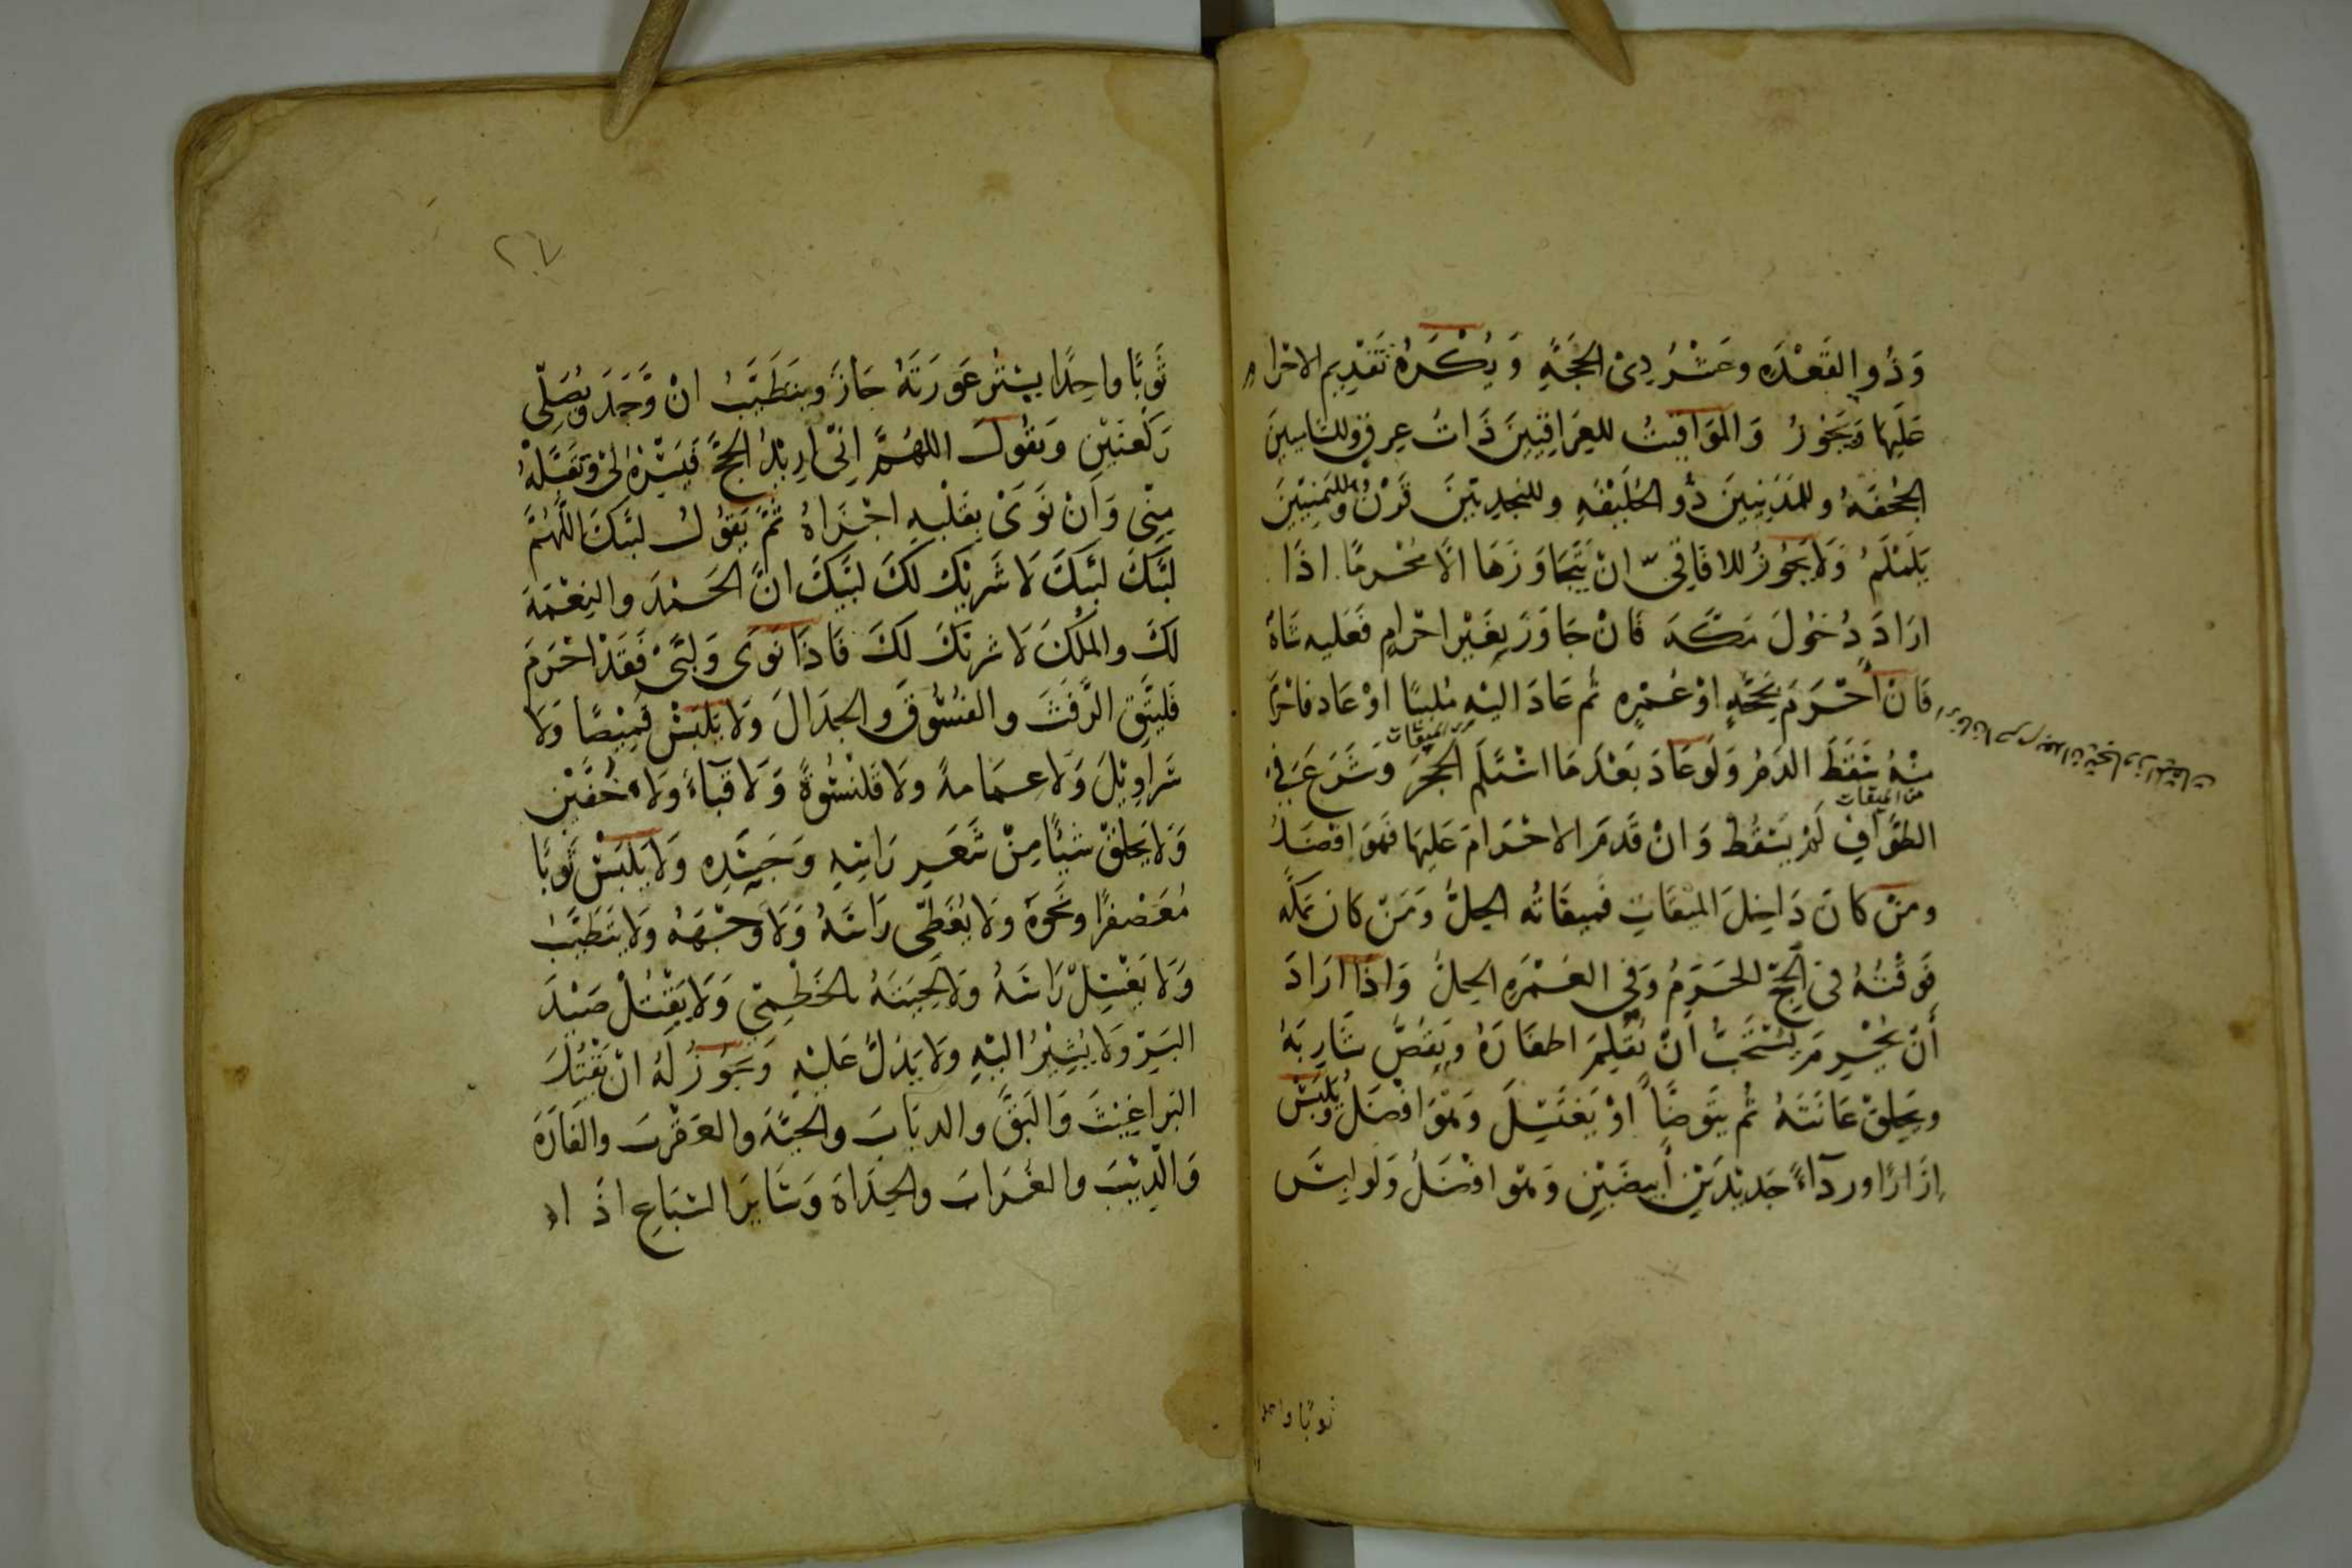 وَذُو القَعْدَه وعَشْرُ ذِى الحَجَّةِ وَيُكْرَهُ تَقْدِيم الاحْرام
عَلَيها وَيَجُوزُ وَالمَوَاقِيتُ للعِرَاقِيّينَ ذَاتُ عِرقٍ وللشاميينَ
الجُحْفَهُ وللمَدَنيينَ ذُو الحُلَيْفَهِ وللنجديّينَ قَرْنُ ولليَمنيّينَ
يَلَمْلَمُ وَلَا يَجُوزُ للافَاقِيّ انْ يَتَجَاوَزَهَا الّا مُحْرمًا اذَا
ارَادَ دُخُولَ مَكّهَ فَانْ جَاوَزَ بِغَيْر احْرامٍ فَعَليه شاةٌ
فَانْ أحْرَمَ بحَجّهٍ اوْ عُمْرِهٍ ثم عَادَ اليْهِ مُلبيًا اوْ عَاد فاحْرَمَ
او فان احرم بعد ان يتجاوز الميقات
من الميقات
مِنْهُ سَقَطَ الدَمُ وَلَو عَادَ بَعْدَمَا اسْتَلَمَ الحَجَرَ وَشَرَعَ فى
من الميقات
الطوَّافِ لَمْ يَسْقُطْ وَانْ قَدمَ الاحْرَامَ عَلَيها فَهوَ افْضَلُ
ومَنْ كانَ دَاخِلَ المِيْقَاتِ فَميقَاتُه الحِلُّ وَمَنْ كان بمكّه
فَوقْتُهُ فى الحَجّ الحَرَمُ وَفى العُمْرَهِ الحِلُّ وَاذَا ارَادَ
أنْ يُحْرِمَ يُسْتَحَبُّ انْ يُقلِمَ اظفَارَهُ وَيَقُصَّ شَارِبَهُ
ويَحلِقَ عَانَتَهُ ثم يَتَوضّأ اوْ يَغتَسِلَ وَهُوَ افْضَلُ ويَلْبَسُ
إزَارًا وردَآءً جَديْدَيْنِ أبيضَيْنِ وَهُو افْضَلُ وَلَو لبِسَ
ثوبًا واحدا
٢٧
ثَوبًا واحِدًا يسْتُرُ عَورَتَهُ جَازَ وَيَتَطَيَّبُ انْ وَّجَدَ وَيُصَلّى
رَكعَتَيْنِ وَيَقُولُ اللهُمَّ انّى اريْدُ الحَجَّ فَيَسِّرْهُ لى وَتَقَبَّلْهُ
مِنّى وَانْ نَوَى بِقَلْبِهِ اجْزَاهُ ثُمَّ يَقُولُ لبَّيكَ اللّهُمَّ
لبَّيكَ لبَّيكَ لَا شَريْكَ لكَ لبَّيكَ انَّ الحَمْدَ والنِعْمَهَ
لكَ والمُلْكَ لَا شريْكَ لَكَ فَاذَا نَوَى وَلبَّى فَقَدْ احْرَمَ
فَليتَّقِ الرَّفَثَ والفُسُوقَ والجِدَالَ وَلا يَلْبَسْ قَمِيْصًا وَلا
سَرَاوِيْلَ وَلَا عمَامةً ولَا قَلنْسُوةً وَلَا قَبآءً وَلا خُفَّيْنِ
وَلَا يَحلقْ شَيئًا مِنْ شَعَرِ رَاسِهِ وَجَسَدِهِ وَلا يَلْبَسْ ثَوبًا
مُعَصْفرًا ونَحوَهُ وَلا يُغَطّى رَاسَهُ وَلَا وَجْهَهُ ولَا يتَطَيَّبُ
وَلا يَغْسِلْ رَاسَهُ وَلَا لِحيَتَهُ بالخَطْمِيّ وَلَا يَقْتُلْ صَيْدَ
البَرِّ وَلا يُشِيْرُ اليْهِ ولَا يَدُلُّ عَليْهِ وَيَجُوْزُ لهُ انْ يَقْتُلَ
البَرَاغِيْثَ وَالبَقَّ والذبَابَ والحَيَّهَ والعَقْرَبَ والفَارَهَ
وَالذِئْبَ والغُرَابَ والحِدَاةَ وَسَايرَ السِبَاعِ اذَا